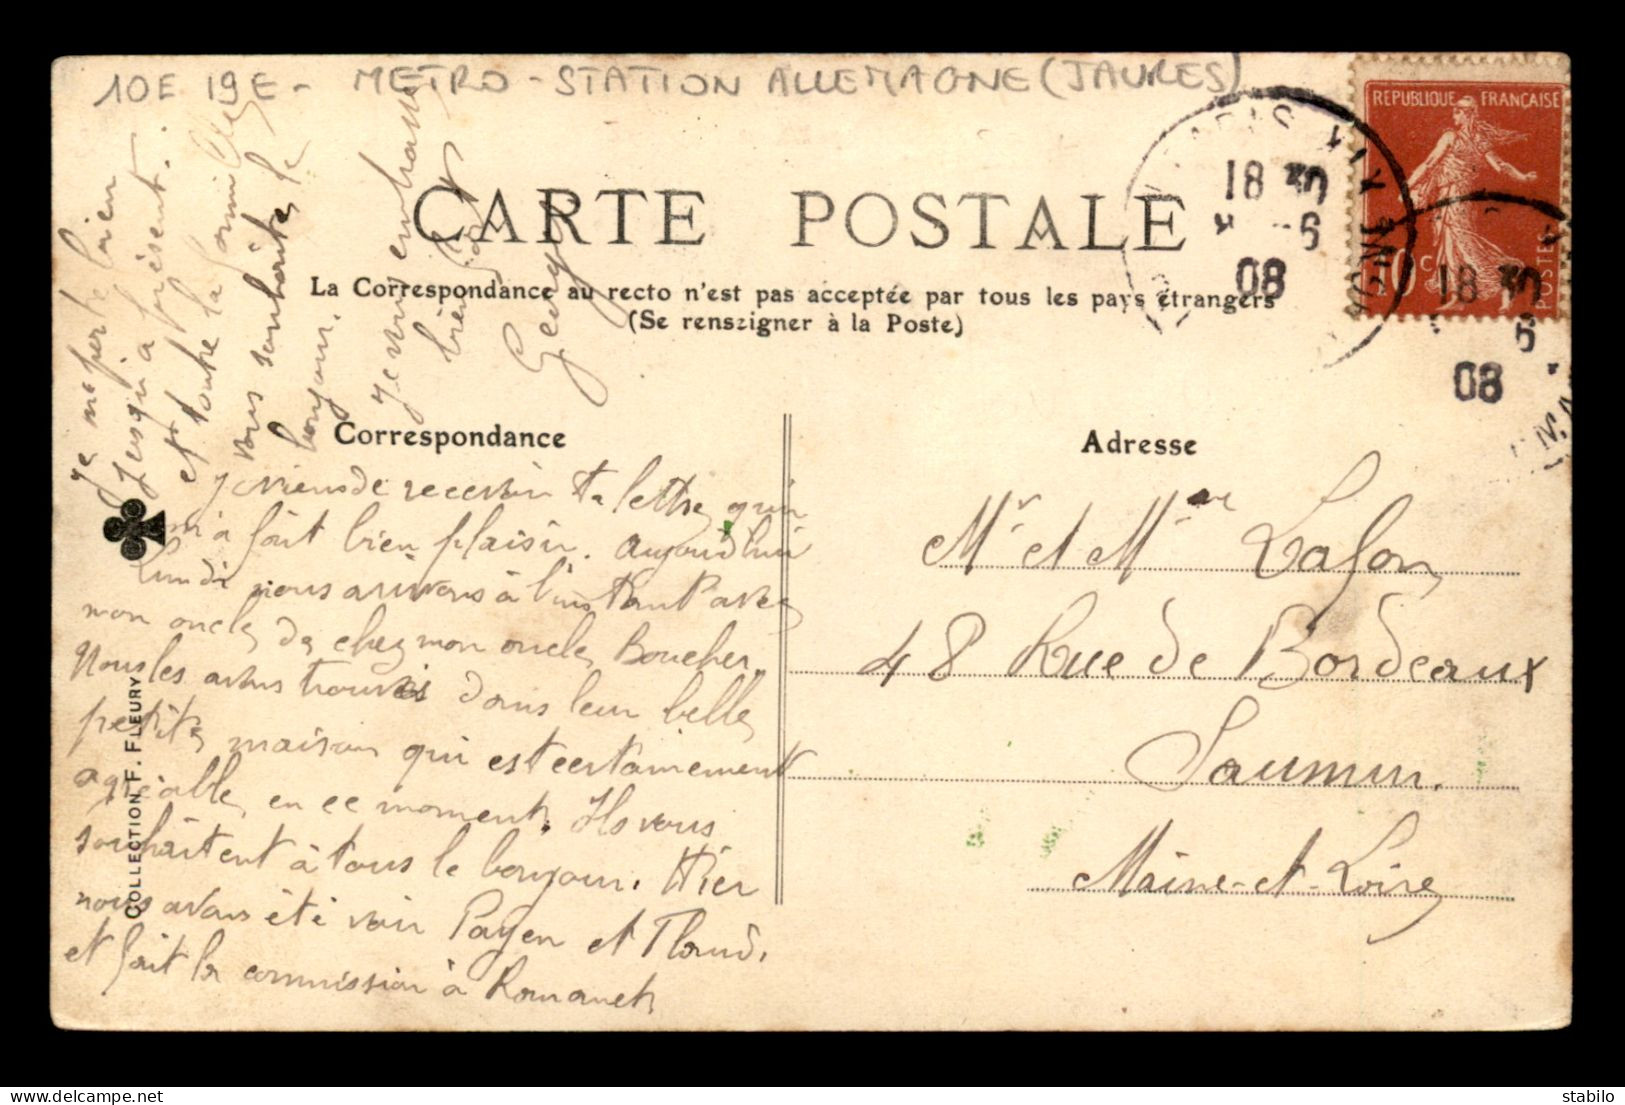 10E 19E - METRO - STATION ALLEMAGNE (JAURES)
REPUBLIQUE FRANÇAISE
10c
POSTES
PARIS
18 30
6
08
18 30
6
08
CARTE POSTALE
La Correspondance au recto n'est pas acceptée par tous les pays étrangers
(Se renseigner à la Poste)
Correspondance
Adresse
Je viens de recevoir ta lettre qui
m'a fait bien plaisir. Aujourd'hui
Lundi nous arrivons à l'instant avec
mon oncle de chez mon oncle Boucher.
Nous les avons trouvés dans leur belle
petite maison qui est certainement
agréable en ce moment. Ils vous
souhaitent à tous le bonjour. Hier
nous avons été voir Payen et
et fait la commission à
Je me porte bien
jusqu'à présent.
et toute la famille
vous souhaite le
bonjour.
Je vous embrasse
bien fort
Mr et Mme Lafon
48 Rue de Bordeaux
Saumur.
Maine-et-Loire
COLLECTION F. FLEURY
stabilo